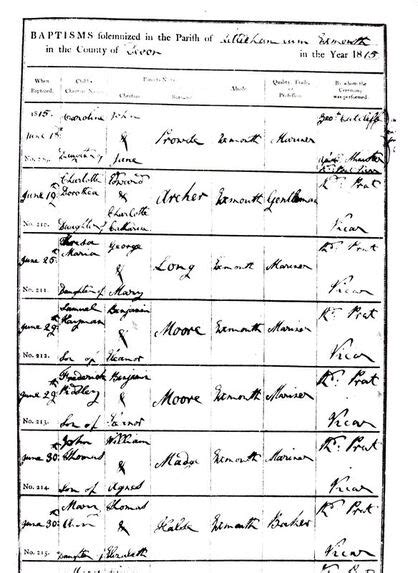 BAPTISMS solemnized in the Parish of Littleham cum Exmouth
in the County of Devon in the Year 1815
When Baptized. Child's Christian Name. Parents Name. Christian. Surname. Abode. Quality, Trade, or Profession. By whom the Ceremony was performed.
1815. Caroline John
June 1st & Prowde Exmouth Mariner
No. 209. Daughter of Minister
Charlotte Edward
June 19th Dorothea & Archer Exmouth Gentleman Rd. Prat
Charlotte
No. 210. Daughter of Catharina Vicar
George Rd. Prat
June 25th Maria & Long Exmouth Mariner
No. 211. Daughter of Mary Vicar
Samuel Benjamin Rd. Prat
June 29th & Moore Exmouth Mariner
No. 212. Son of Eleanor Vicar
Frederick Benjamin Rd. Prat
June 29th Ridley & Moore Exmouth Mariner
No. 213. Son of Vicar
John William Rd. Prat
June 30th Thomas & Madge Exmouth Mariner
No. 214. Son of Agnes Vicar
Mary Thomas Rd. Prat
June 30th Ann & Exmouth Baker
No. 215. Daughter of Elizabeth Vicar